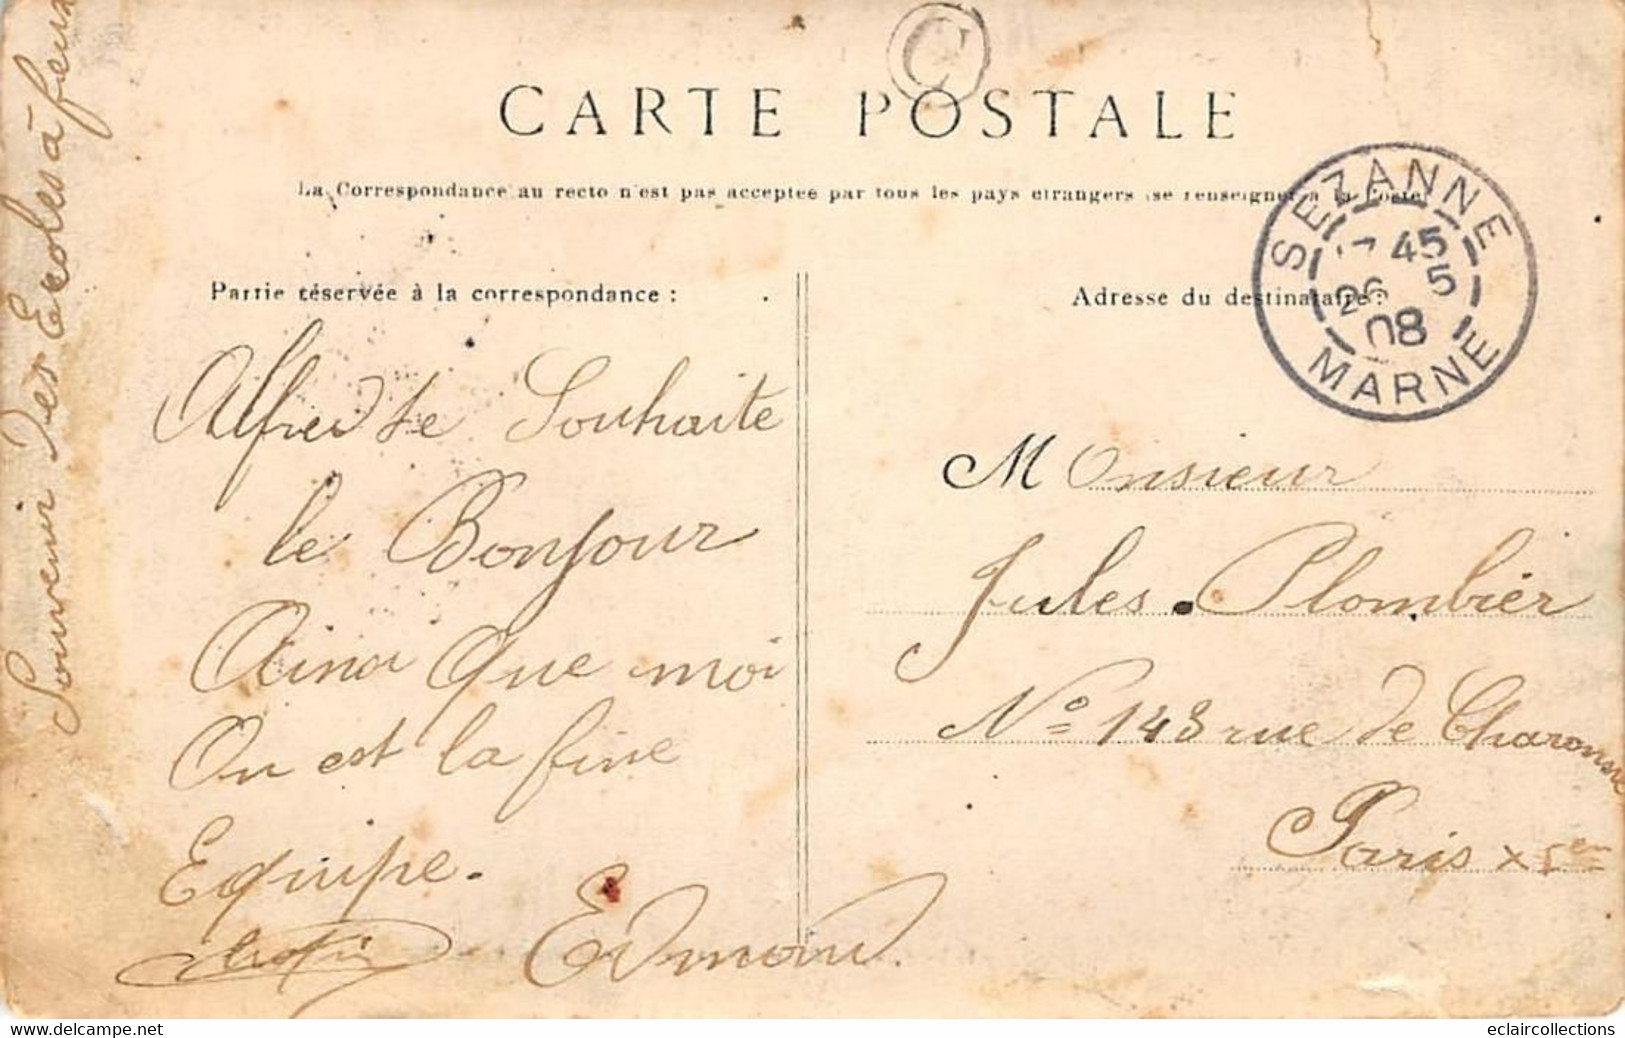 C
CARTE POSTALE
La Correspondance au recto n'est pas acceptée par tous les pays étrangers (se renseigner à la Poste
Partie réservée à la correspondance :
Adresse du destinataire :
SEZANNE
17 45
26 5
08
MARNE
Souvenir Des Ecoles à feux
Alfred te Souhaite
le Bonjour
Ainsi que moi
On est la fine
Equipe.
Edmond.
Monsieur
Jules Plombier
No 148 rue de Charonne
Paris
eclaircollections